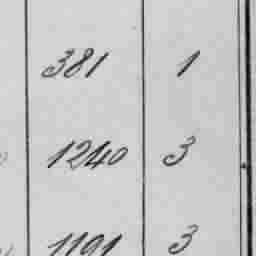 381 1
1240 3
1191 3